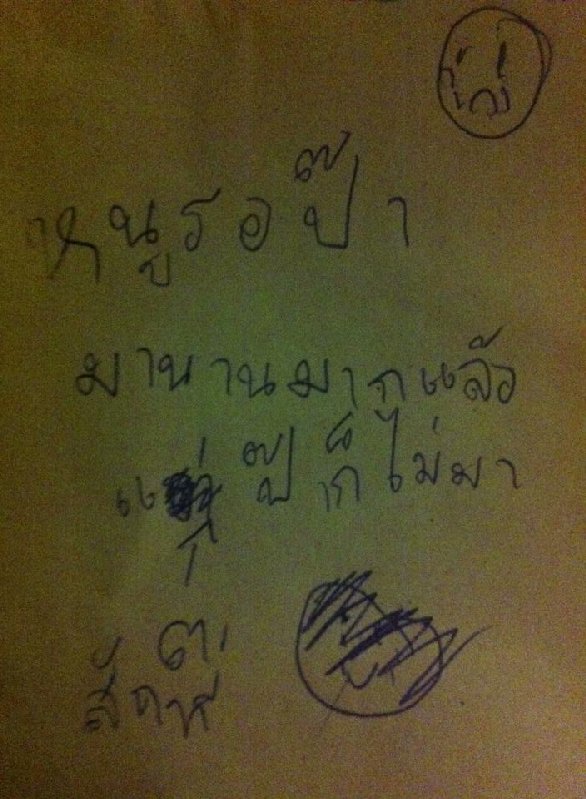 หนูรอป๊า
มานานมากแล้ว
แต่ป๊าก็ไม่มา
ต่